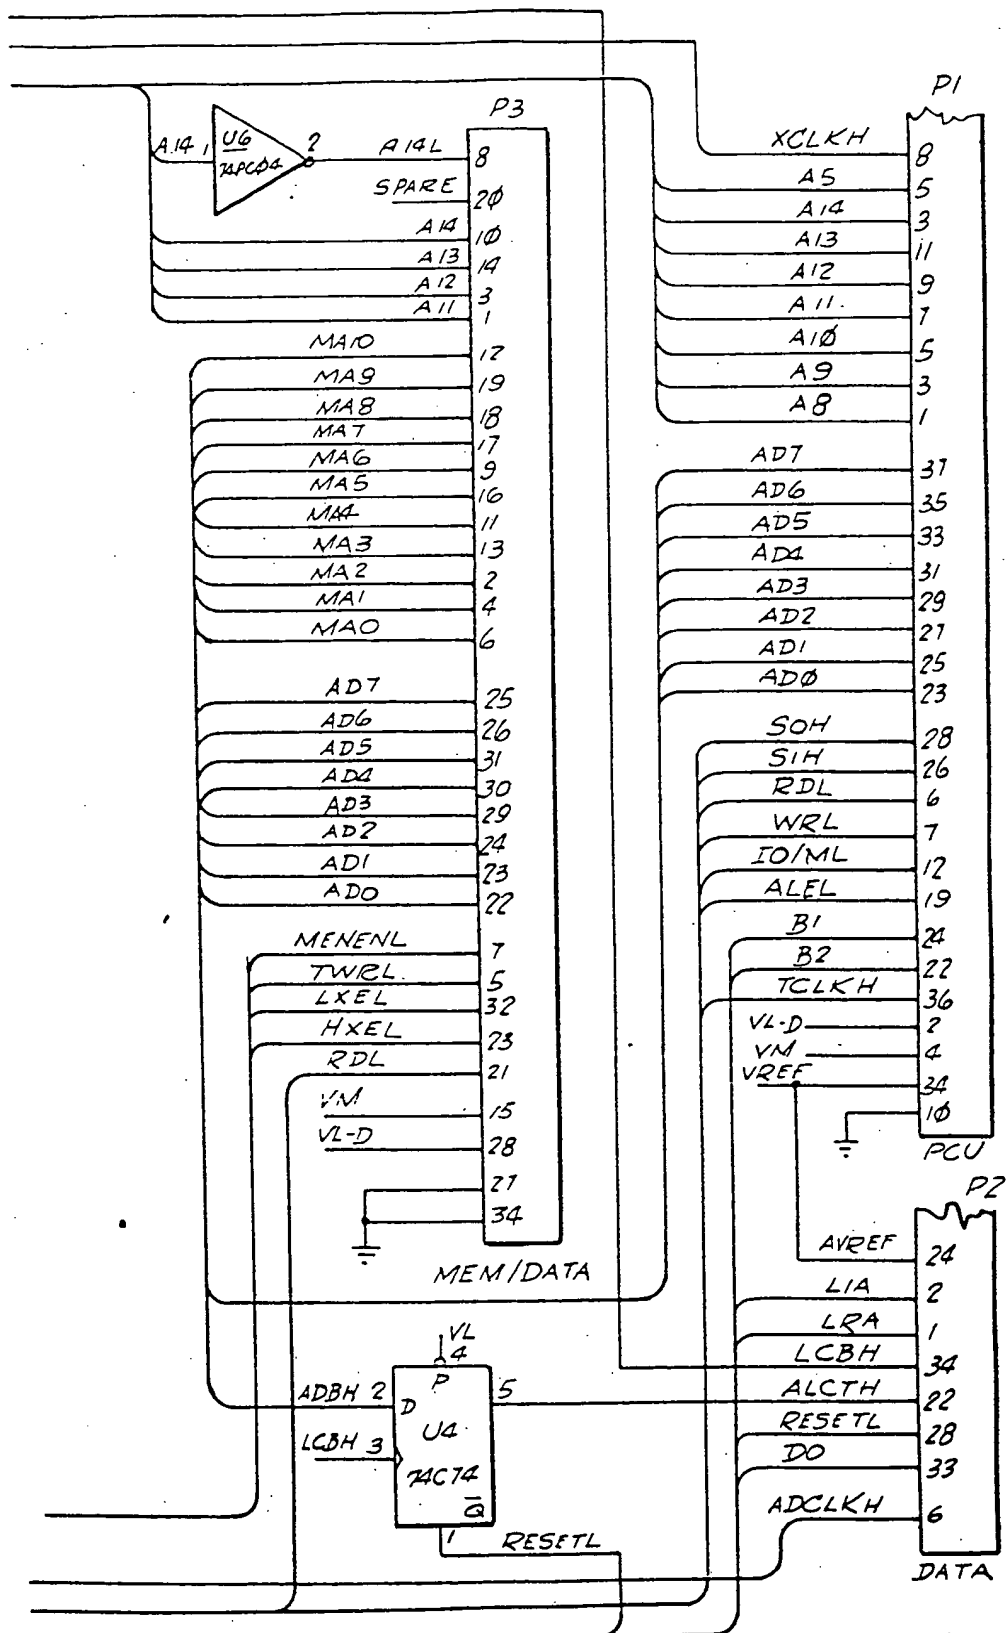 P1
P3
A14 1 U6 2 A14L 8
74PCØ4
SPARE 2Ø
A14 1Ø
A13 14
A12 3
A11 1
MA10 12
MA9 19
MA8 18
MA7 17
MA6 9
MA5 16
MA4 11
MA3 13
MA2 2
MA1 4
MA0 6
AD7 25
AD6 26
AD5 31
AD4 30
AD3 29
AD2 24
AD1 23
AD0 22
MENENL 7
TWRL 5
LXEL 32
HXEL 23
RDL 21
VM 15
VL-D 28
27
34
MEM/DATA
XCLKH 8
A5 5
A14 3
A13 11
A12 9
A11 7
A1Ø 5
A9 3
A8 1
AD7 37
AD6 35
AD5 33
AD4 31
AD3 29
AD2 27
AD1 25
ADØ 23
SOH 28
S1H 26
RDL 6
WRL 7
IO/ML 12
ALEL 19
B1 24
B2 22
TCLKH 36
VL-D 2
VM 4
VREF 34
1Ø
PCU
P2
AVREF 24
LIA 2
LRA 1
LCBH 34
ALCTH 22
RESETL 28
DO 33
ADCLKH 6
DATA
VL
4
P
ADBH 2 D 5
U4
LCBH 3
74C74
Q̅
1
RESETL